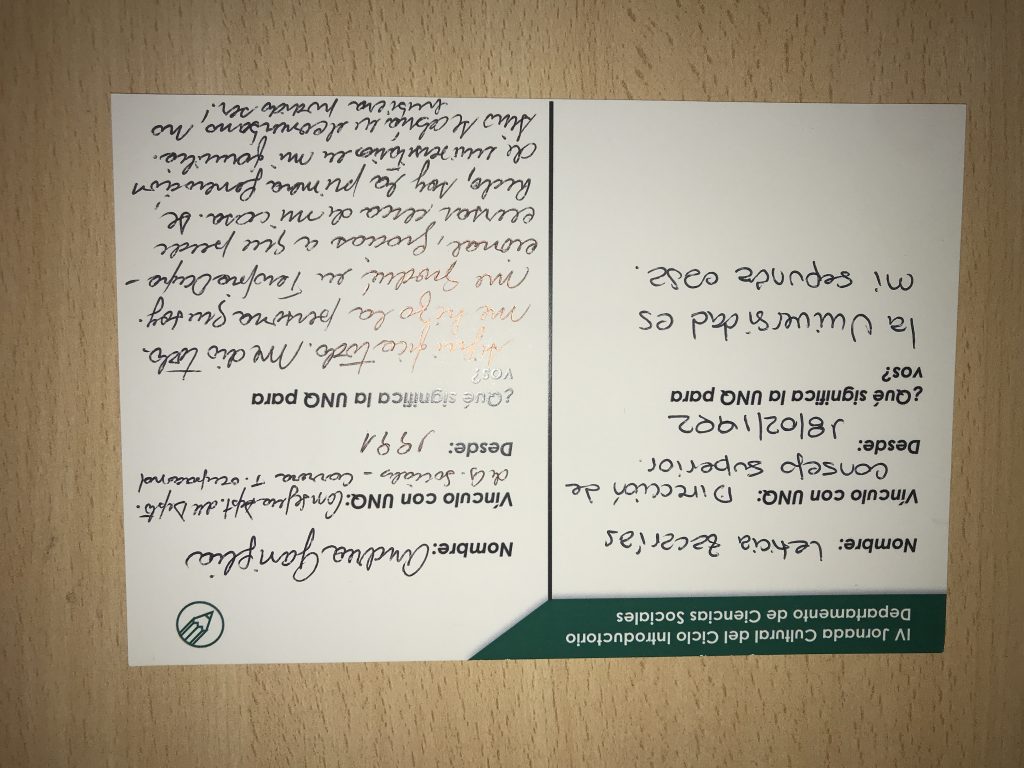 IV Jornada Cultural del Ciclo Introductorio
Departamento de Ciencias Sociales
Nombre: Leticia Zacarías
Vínculo con UNQ: Dirección de
Consejo Superior.
Desde:
18/02/1992
¿Qué significa la UNQ para
vos?
la Universidad es
mi segunda casa.
Nombre: Andrea Ganiplia
Vínculo con UNQ: Consejera dpt. del Depto.
de Cs. Sociales - Carrera T. ocupacional
Desde: 1991
¿Qué significa la UNQ para
vos?
Significa todo. Me dio todo.
me hizo la persona que soy.
me gradué en Terapia Ocupa-
cional, gracias a que pude
cursar cerca de mi casa. De
hecho, soy la primera generación
de universitarios en mi familia.
Sino estaba en el conurbano no
hubiera podido ser!